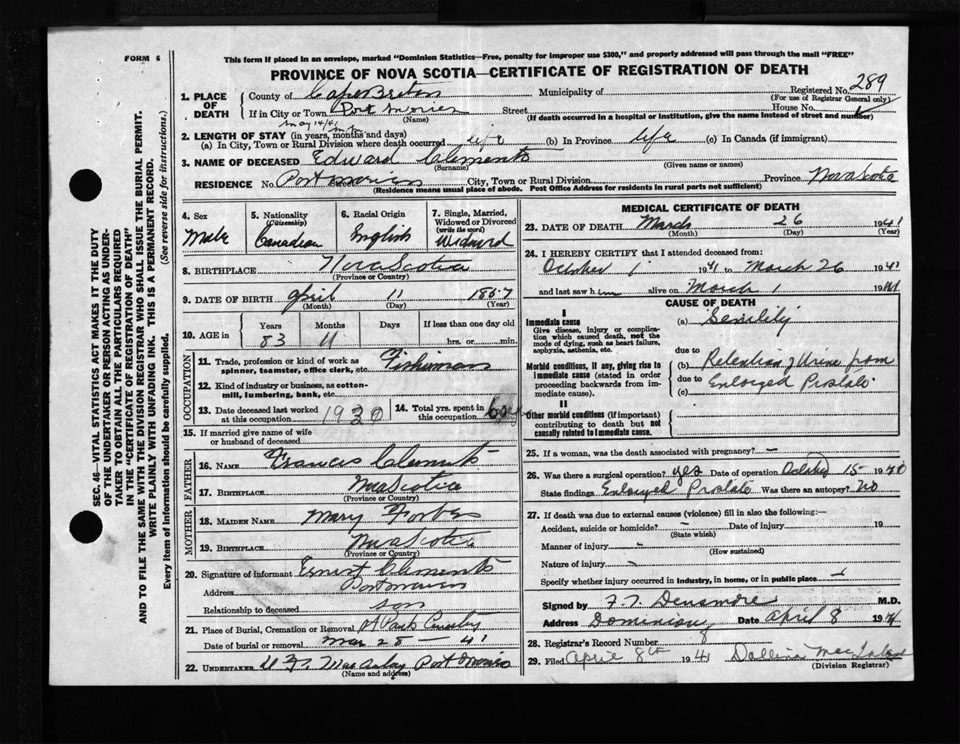 FORM 6
This form if placed in an envelope, marked "Dominion Statistics—Free, penalty for improper use $300," and properly addressed will pass through the mail "FREE"
PROVINCE OF NOVA SCOTIA—CERTIFICATE OF REGISTRATION OF DEATH
SEC. 46—VITAL STATISTICS ACT MAKES IT THE DUTY
OF THE UNDERTAKER OR PERSON ACTING AS UNDER-
TAKER TO OBTAIN ALL THE PARTICULARS REQUIRED
IN THE "CERTIFICATE OF REGISTRATION OF DEATH"
AND TO FILE THE SAME WITH THE DIVISION REGISTRAR WHO SHALL ISSUE THE BURIAL PERMIT.
WRITE PLAINLY WITH UNFADING INK. THIS IS A PERMANENT RECORD.
Every item of information should be carefully supplied. (See reverse side for instructions.)
1. PLACE OF DEATH County of Cape Breton Municipality of Registered No. 289
(For use of Registrar General only)
If in City or Town Port Morien Street House No.
(Name) (If death occurred in a hospital or institution, give the name instead of street and number)
May 14/41
2. LENGTH OF STAY (in years, months and days)
(a) In City, Town or Rural Division where death occurred life (b) In Province life (c) In Canada (if immigrant)
3. NAME OF DECEASED Edward Clements
(Surname) (Given name or names)
RESIDENCE No. Port Morien Street City, Town or Rural Division Province Nova Scotia
(Residence means usual place of abode. Post Office Address for residents in rural parts not sufficient)
4. Sex Male
5. Nationality (Citizenship) Canadian
6. Racial Origin English
7. Single, Married, Widowed or Divorced (write the word) Widowed
8. BIRTHPLACE Nova Scotia
(Province or Country)
9. DATE OF BIRTH April 11 1857
(Month) (Day) (Year)
10. AGE in Years Months Days If less than one day old
83 11 hrs. or min.
OCCUPATION
11. Trade, profession or kind of work as spinner, teamster, office clerk, etc. Fisherman
12. Kind of industry or business, as cotton-mill, lumbering, bank, etc.
13. Date deceased last worked at this occupation 1930
14. Total yrs. spent in this occupation 60
15. If married give name of wife or husband of deceased
FATHER
16. NAME Francis Clements
17. BIRTHPLACE Nova Scotia
(Province or Country)
MOTHER
18. MAIDEN NAME Mary Forbes
19. BIRTHPLACE Nova Scotia
(Province or Country)
20. Signature of informant Ernest Clements
Address Port Morien
Relationship to deceased son
21. Place of Burial, Cremation or Removal
Date of burial or removal Mar 28 41
22. UNDERTAKER Port Morien
(Name and address)
MEDICAL CERTIFICATE OF DEATH
23. DATE OF DEATH March 26 1941
(Month) (Day) (Year)
24. I HEREBY CERTIFY that I attended deceased from:
October 1 1941 to March 26 1941
and last saw him alive on March 1 1941
CAUSE OF DEATH
I
Immediate cause
Give disease, injury or complication which caused death, not the mode of dying, such as heart failure, asphyxia, asthenia, etc.
(a) Senility
due to
Morbid conditions, if any, giving rise to immediate cause (stated in order proceeding backwards from immediate cause).
(b) Retention of Urine from
due to Enlarged Prostate
(c)
II
Other morbid conditions (if important) contributing to death but not causally related to immediate cause.
25. If a woman, was the death associated with pregnancy? —
26. Was there a surgical operation? yes Date of operation October 15 1940
State findings Enlarged Prostate Was there an autopsy? No
27. If death was due to external causes (violence) fill in also the following:—
Accident, suicide or homicide? – Date of injury 19
(State which)
Manner of injury
(How sustained)
Nature of injury
Specify whether injury occurred in industry, in home, or in public place
Signed by F. T. Densmore M.D.
Address Dominion Date April 8 1941
28. Registrar's Record Number
29. Filed April 8th 1941
(Division Registrar)